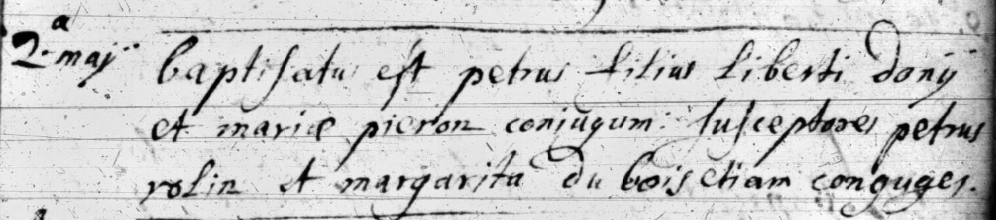 2.a maij baptisatus est petrus filius liberti donij
et mariæ pieron coniugum. susceptores petrus
rolin et margarita du bois etiam conguges.